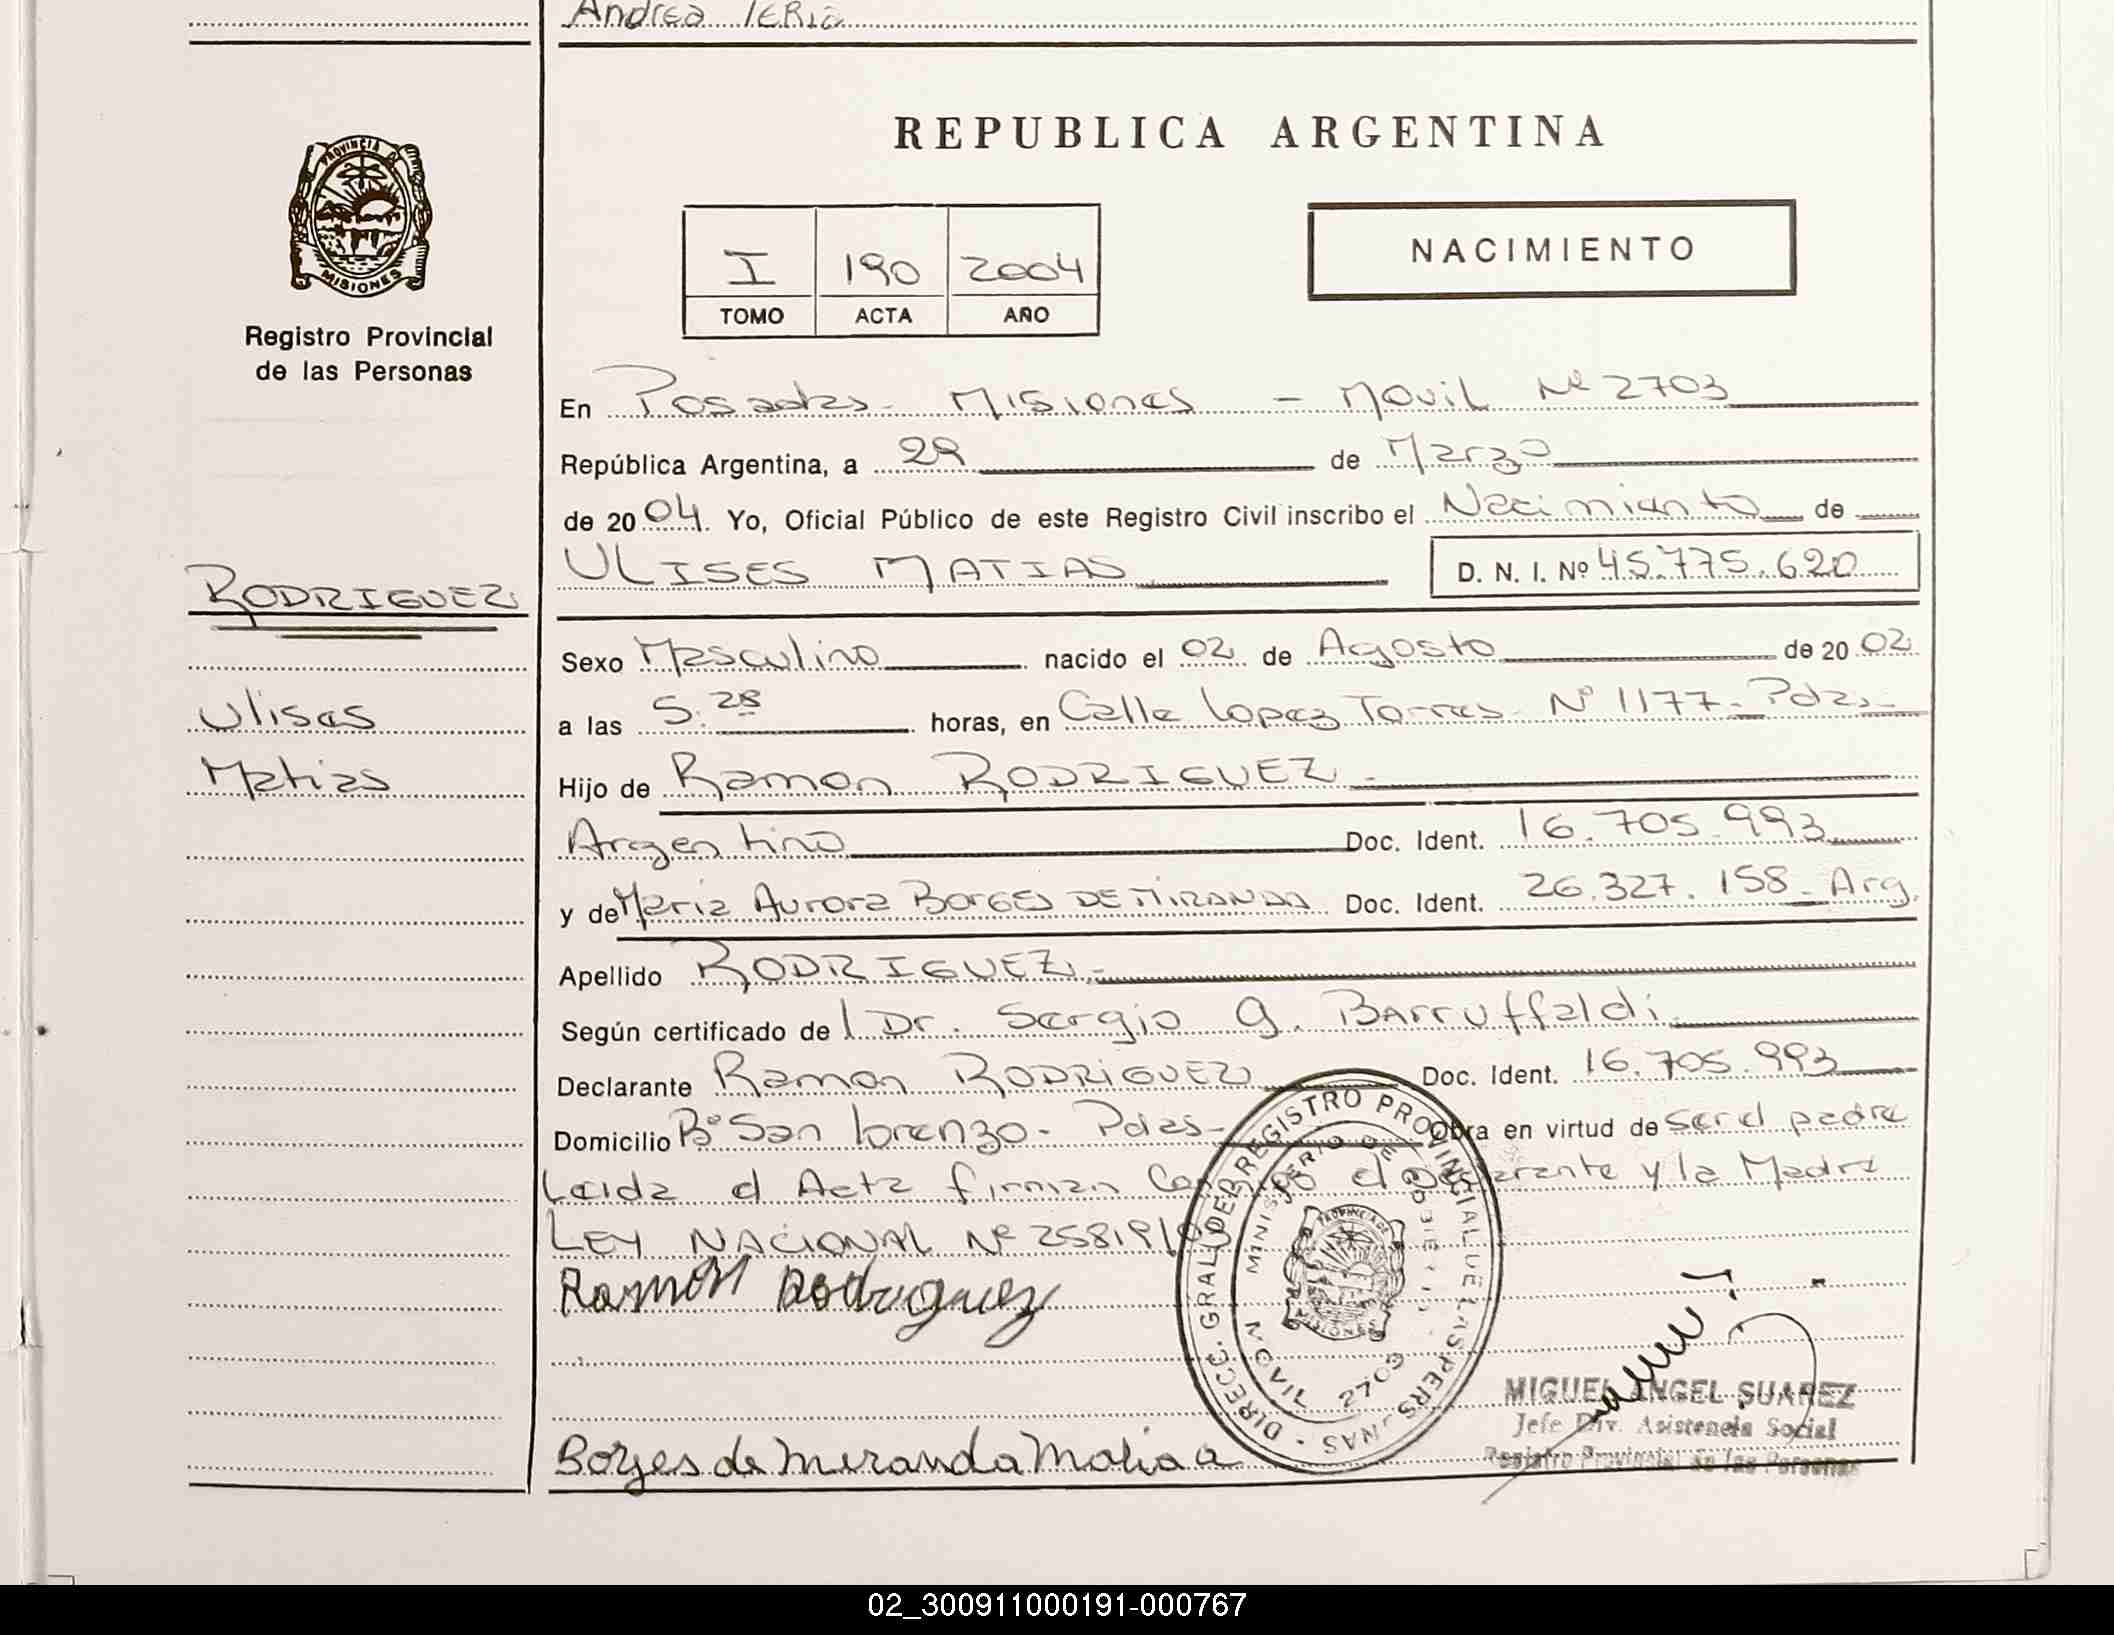 Andrea
REPUBLICA ARGENTINA
PROVINCIA DE
MISIONES
Registro Provincial
de las Personas
I 190 2004
TOMO ACTA AÑO
NACIMIENTO
En Posadas - Misiones - Movil Nº 2703
República Argentina, a 29 de Marzo
de 2004. Yo, Oficial Público de este Registro Civil inscribo el Nacimiento de
RODRIGUEZ
ULISES MATIAS D. N. I. Nº 45.775.620
Sexo Masculino nacido el 02 de Agosto de 2002
Ulises
a las 5.28 horas, en Calle Lopez Torres Nº 1177 - Pdas -
Matias
Hijo de Ramon RODRIGUEZ -
Argentino Doc. Ident. 16.705.993
y de Maria Aurora BORGES DE MIRANDA Doc. Ident. 26.327.158 - Arg.
Apellido RODRIGUEZ -
Según certificado de Dr. Sergio G. Barruffaldi
Declarante Ramon RODRIGUEZ Doc. Ident. 16.705.993
Domicilio Bº San Lorenzo - Pdas - Obra en virtud de ser el padre
Leida el Acta firman Conmigo el Declarante y la Madre
LEY NACIONAL Nº 25819/03
Ramon Rodriguez
DIRECC. GRAL. DEL REGISTRO PROVINCIAL DE LAS PERSONAS
MINISTERIO DE GOBIERNO
PROVINCIA DE
MISIONES
MOVIL 2703
MIGUEL ANGEL SUAREZ
Jefe Div. Asistencia Social
Registro Provincial de las Personas
Borges de Miranda Maria a
02_300911000191-000767